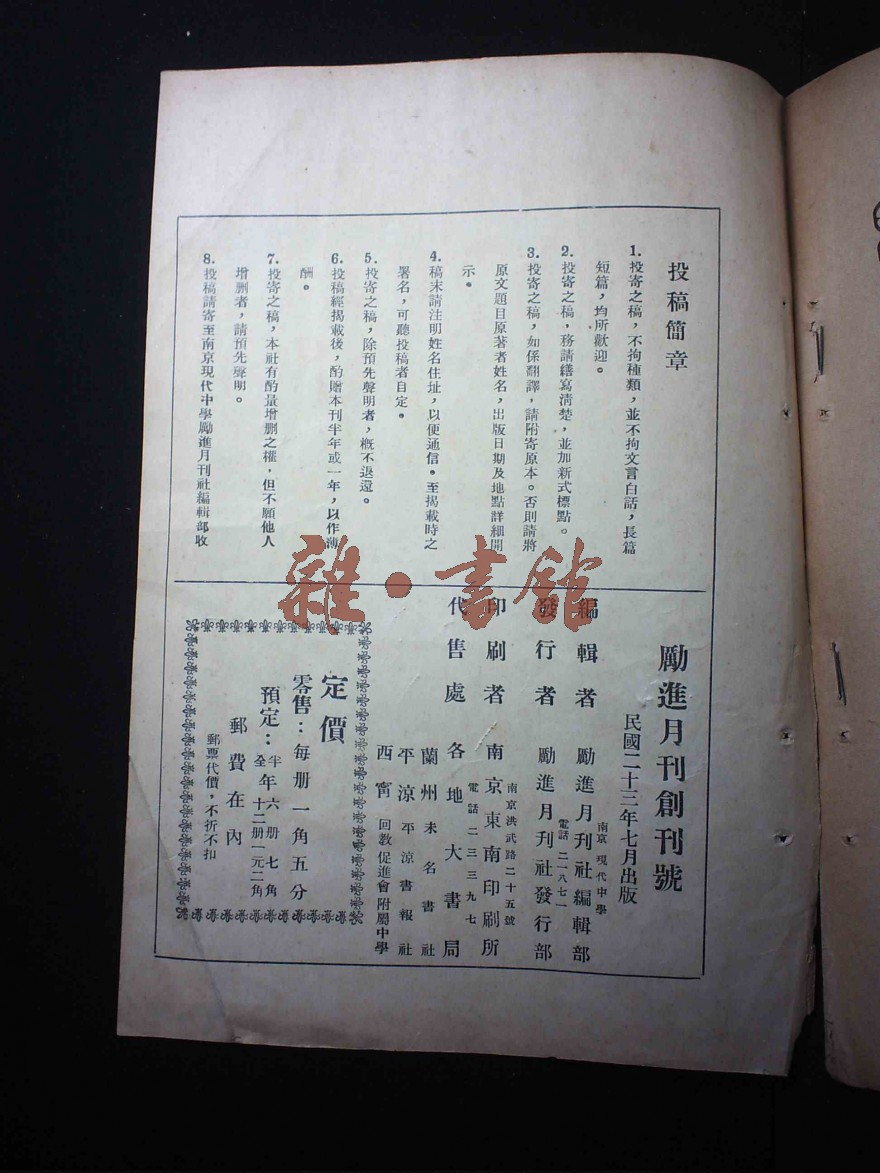 投稿簡章
1.投寄之稿，不拘種類，並不拘文言白話，長篇
短篇，均所歡迎。
2.投寄之稿，務請繕寫清楚，並加新式標點。
3.投寄之稿，如係翻譯，請附寄原本。否則請將
原文題目原著者姓名，出版日期及地點詳細開
示。
4.稿末請注明姓名住址，以便通信。至揭載時之
署名，可聽投稿者自定。
5.投寄之稿，除預先聲明者，槪不退還。
6.投稿經揭載後，酌贈本刊半年或一年，以作薄
酬。
7.投寄之稿，本社有酌量增删之權，但不願他人
增删者，請預先聲明。
8.投稿請寄至南京現代中學勵進月刊社編輯部收
勵進月刊創刊號
民國二十三年七月出版
南京現代中學
編輯者 勵進月刊社編輯部
電話二一八七一
發行者 勵進月刊社發行部
南京洪武路二十五號
印刷者 南京東南印刷所
電話二三三九七
代售處 各地大書局
蘭州未名書社
平涼平涼書報社
西甯回教促進會附屬中學
定價
零售：每册一角五分
預定：半年六册七角
全年十二册一元二角
郵費在內
郵票代價，不折不扣
雜·書館